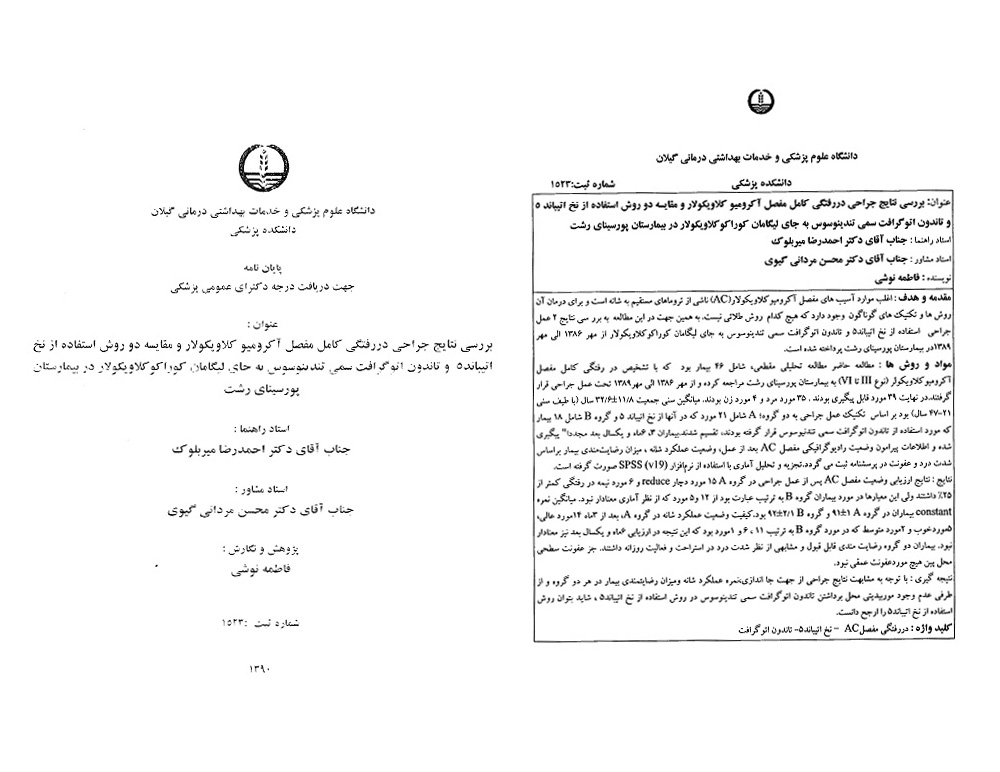 دانشگاه علوم پزشکی و خدمات بهداشتی درمانی گیلان
دانشکده پزشکی
شماره ثبت:۱۵۲۳
عنوان: بررسی نتایج جراحی دررفتگی کامل مفصل آکرومیو کلاویکولار و مقایسه دو روش استفاده از نخ اتیباند ۵
و تاندون اتوگرافت سمی تندینوسوس به جای لیگامان کوراکوکلاویکولار در بیمارستان پورسینای رشت
استاد راهنما : جناب آقای دکتر احمدرضا میربلوک
استاد مشاور : جناب آقای دکتر محسن مردانی گیوی
نویسنده : فاطمه نوشی
مقدمه و هدف : اغلب موارد آسیب های مفصل آکرومیوکلاویکولار(AC) ناشی از تروماهای مستقیم به شانه است و برای درمان آن
روش ها و تکنیک های گوناگون وجود دارد که هیچ کدام روش طلائی نیست. به همین جهت در این مطالعه به برر سی نتایج ۲ عمل
جراحی استفاده از نخ اتیباند۵ و تاندون اتوگرافت سمی تندینوسوس به جای لیگامان کوراکوکلاویکولار از مهر ۱۳۸۶ الی مهر
۱۳۸۹در بیمارستان پورسینای رشت پرداخته شده است.
مواد و روش ها : مطالعه حاضر مطالعه تحلیلی مقطعی، شامل ۴۶ بیمار بود که با تشخیص در رفتگی کامل مفصل
آکرومیوکلاویکولر (نوع III تا VI) به بیمارستان پورسینای رشت مراجعه کرده و از مهر ۱۳۸۶ الی مهر۱۳۸۹ تحت عمل جراحی قرار
گرفتند.در نهایت ۳۹ مورد قابل پیگیری بودند ، ۳۵ مورد مرد و ۴ مورد زن بودند. میانگین سنی جمعیت ۱۱/۸±۳۲/۶ سال (با طیف سنی
۲۱-۴۷ سال) بود بر اساس تکنیک عمل جراحی به دو گروه؛ A شامل ۲۱ مورد که در آنها از نخ اتیباند ۵ و گروه B شامل ۱۸ بیمار
که مورد استفاده از تاندون اتوگرافت سمی تندنیوسوس قرار گرفته بودند، تقسیم شدند.بیماران ۳، ۶ماه و یکسال بعد مجددا" پیگیری
شده و اطلاعات پیرامون وضعیت رادیوگرافیکی مفصل AC بعد از عمل، وضعیت عملکرد شانه ، میزان رضایت‌مندی بیمار براساس
شدت درد و عفونت در پرسشنامه ثبت می گردد.تجزیه و تحلیل آماری با استفاده از نرم‌افزار SPSS (v19) صورت گرفته است.
نتایج : نتایج ارزیابی وضعیت مفصل AC پس از عمل جراحی در گروه A ۱۵ مورد دچار reduce و ۶ مورد نیمه در رفتگی کمتر از
۲۵٪ داشتند ولی این معیارها در مورد بیماران گروه B به ترتیب عبارت بود از ۱۲ و۵ مورد که از نظر آماری معنادار نبود. میانگین نمره
constant بیماران در گروه A ۹۱±۱ و گروه B ۹۲±۲/۱ بود.کیفیت وضعیت عملکرد شانه در گروه A، بعد از ۳ماه ۱۴مورد عالی،
۵موردخوب و ۲مورد متوسط که در مورد گروه B به ترتیب ۱۱ ، ۶ و ۱مورد بود که این نتیجه در ارزیابی ۶ماه و یکسال بعد نیز معنادار
نبود. بیماران دو گروه رضایت مندی قابل قبول و مشابهی از نظر شدت درد در استراحت و فعالیت روزانه داشتند. جز عفونت سطحی
محل پین هیچ موردعفونت عمقی نبود.
نتیجه گیری : با توجه به مشابهت نتایج جراحی از جهت جا اندازی،نمره عملکرد شانه ومیزان رضایتمندی بیمار در هر دو گروه و از
طرفی عدم وجود موربیدیتی محل برداشتن تاندون اتوگرافت سمی تندینوسوس در روش استفاده از نخ اتیباند۵ ، شاید بتوان روش
استفاده از نخ اتیباند۵ را ارجح دانست.
کلید واژه : دررفتگی مفصلAC – نخ اتیباند۵- تاندون اتوگرافت
دانشگاه علوم پزشکی و خدمات بهداشتی درمانی گیلان
دانشکده پزشکی
پایان نامه
جهت دریافت درجه دکترای عمومی پزشکی
عنوان :
بررسی نتایج جراحی دررفتگی کامل مفصل آکرومیو کلاویکولار و مقایسه دو روش استفاده از نخ
اتیباند۵ و تاندون اتوگرافت سمی تندینوسوس به جای لیگامان کوراکوکلاویکولار در بیمارستان
پورسینای رشت
استاد راهنما :
جناب آقای دکتر احمدرضا میربلوک
استاد مشاور :
جناب آقای دکتر محسن مردانی گیوی
پژوهش و نگارش :
فاطمه نوشی
شماره ثبت :۱۵۲۳
۱۳۹۰